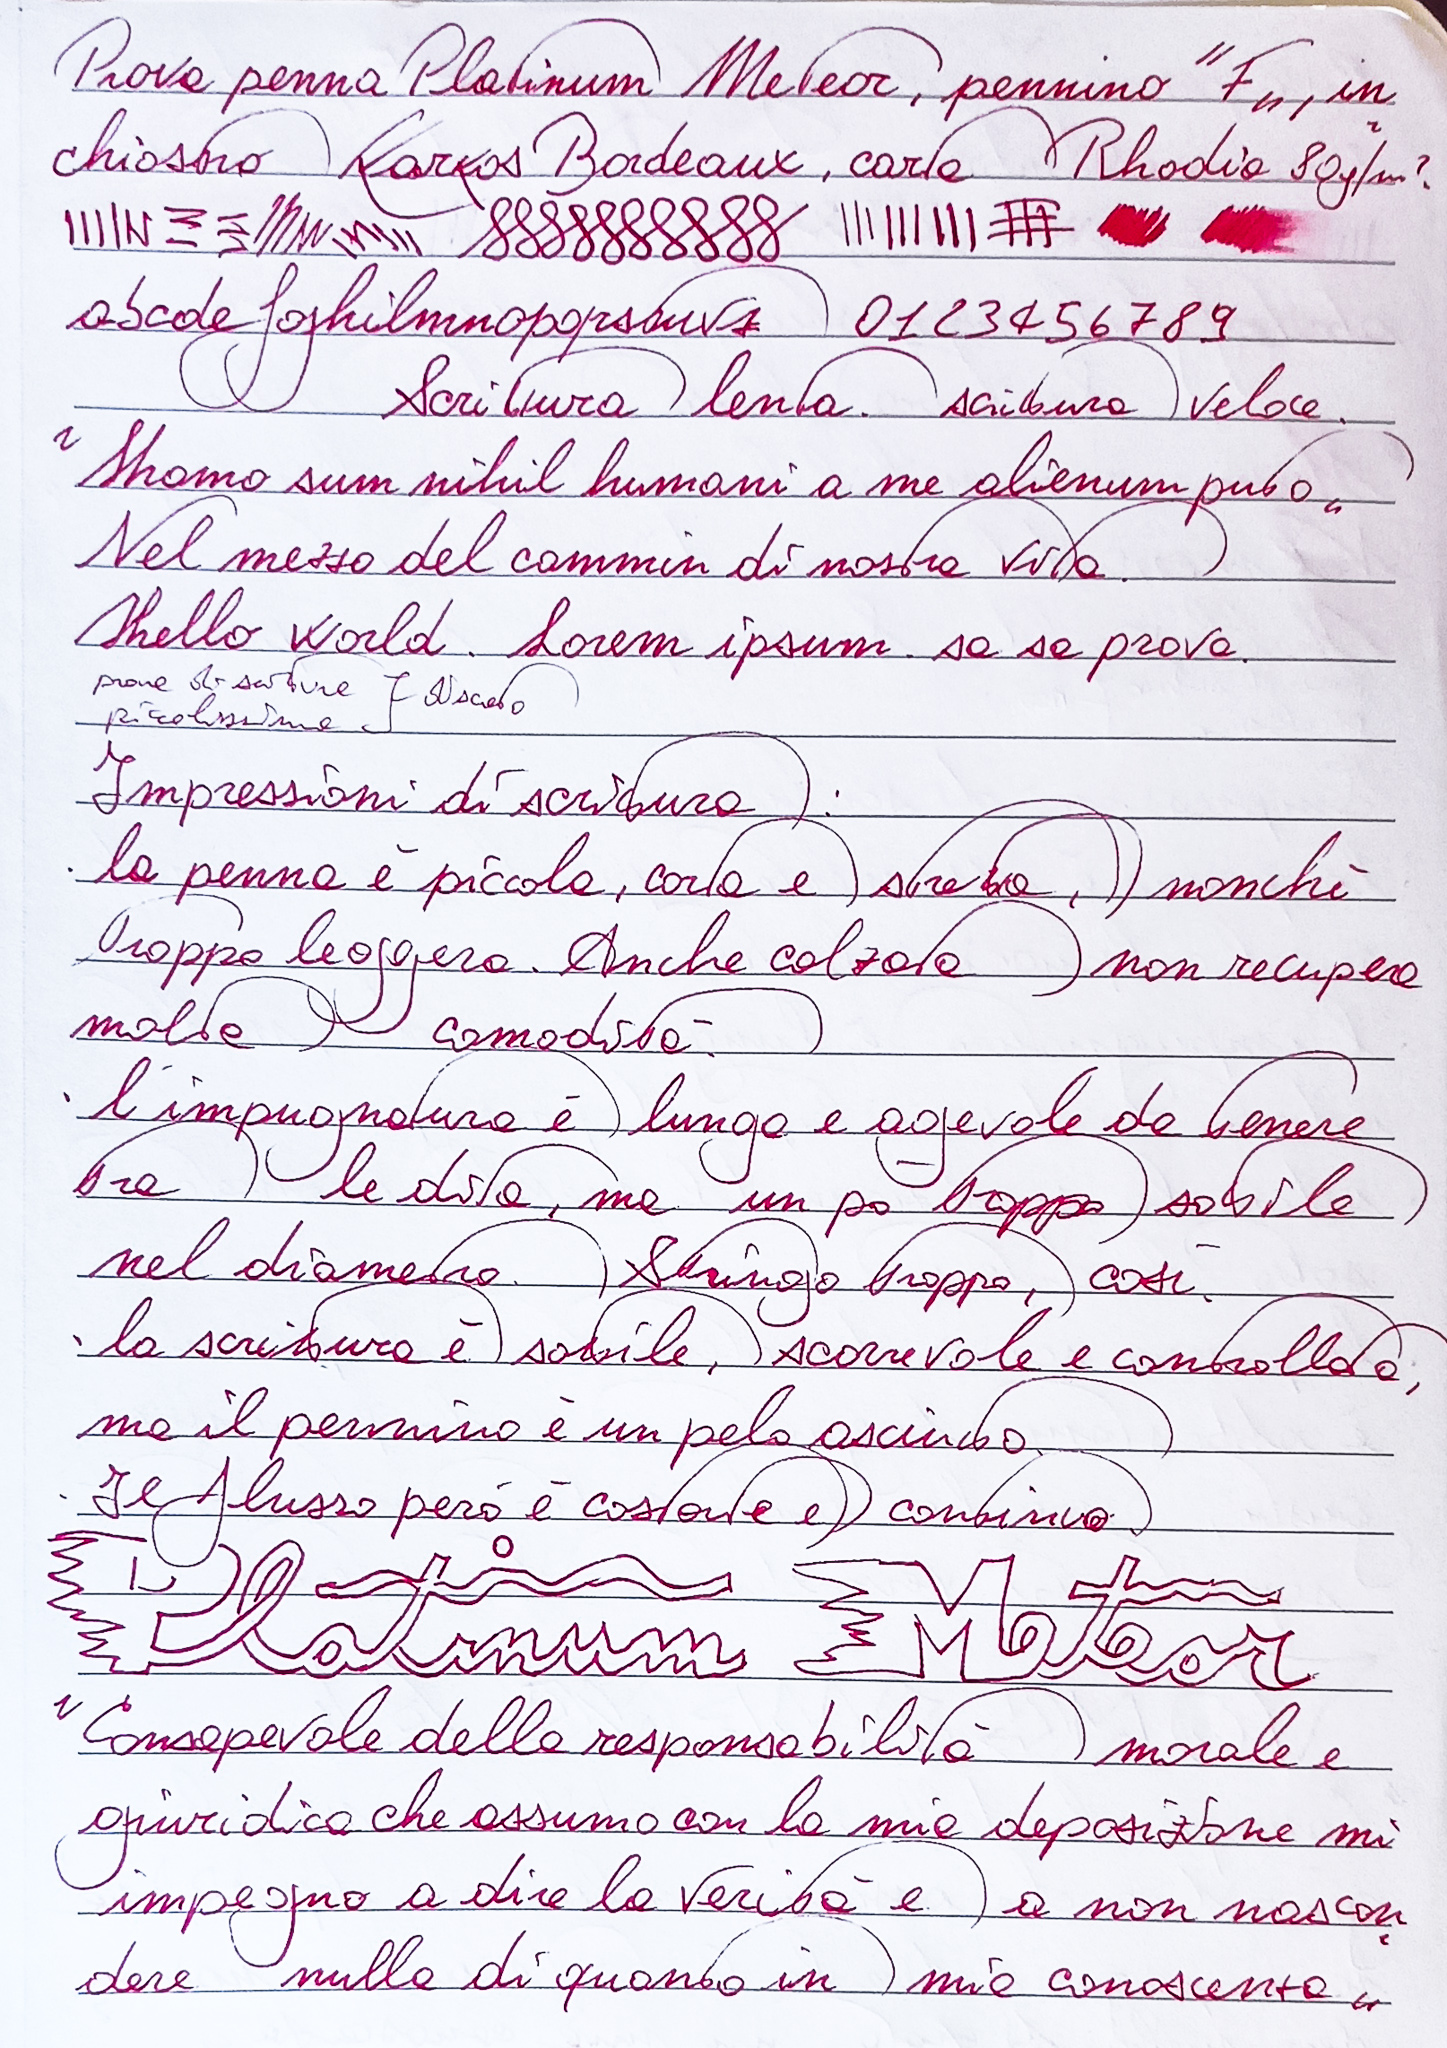 Prova penna Platinum Meteor, pennino "F", in
chiostro Karkos Bordeaux, carta Rhodia 80g/m².
abcdefghilmnopqrstuvz 0123456789
Scrittura lenta. scrittura veloce.
"Homo sum nihil humani a me alienum puto"
Nel mezzo del cammin di nostra vita.
Hello world. Lorem ipsum. sa sa prova.
prova di scrittura } discreto
piccolissima
Impressioni di scrittura:
. la penna è piccola, corta e stretta, nonché
troppo leggera. Anche calzata non recupera
molta comodità.
. l'impugnatura è lunga e agevole da tenere
tra le dita, ma un po troppo sottile
nel diametro. Stringo troppo, così.
. la scrittura è sottile, scorrevole e controllata,
ma il pennino è un pelo asciutto.
. Il flusso però è costante e continuo.
Platinum Meteor
"Consapevole della responsabilità morale e
giuridica che assumo con la mia deposizione mi
impegno a dire la verità e a non nascon
dere nulla di quanto in mia conoscenza"